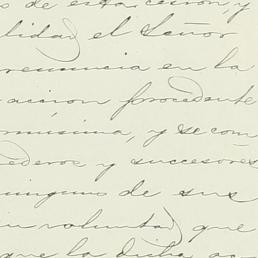 s de esta cesion, y
lidad el Señor
renuncia en la
accion procedente
misima, y se com
ederos y succesores
ninguno de sus
u voluntad que
que la dicha ac